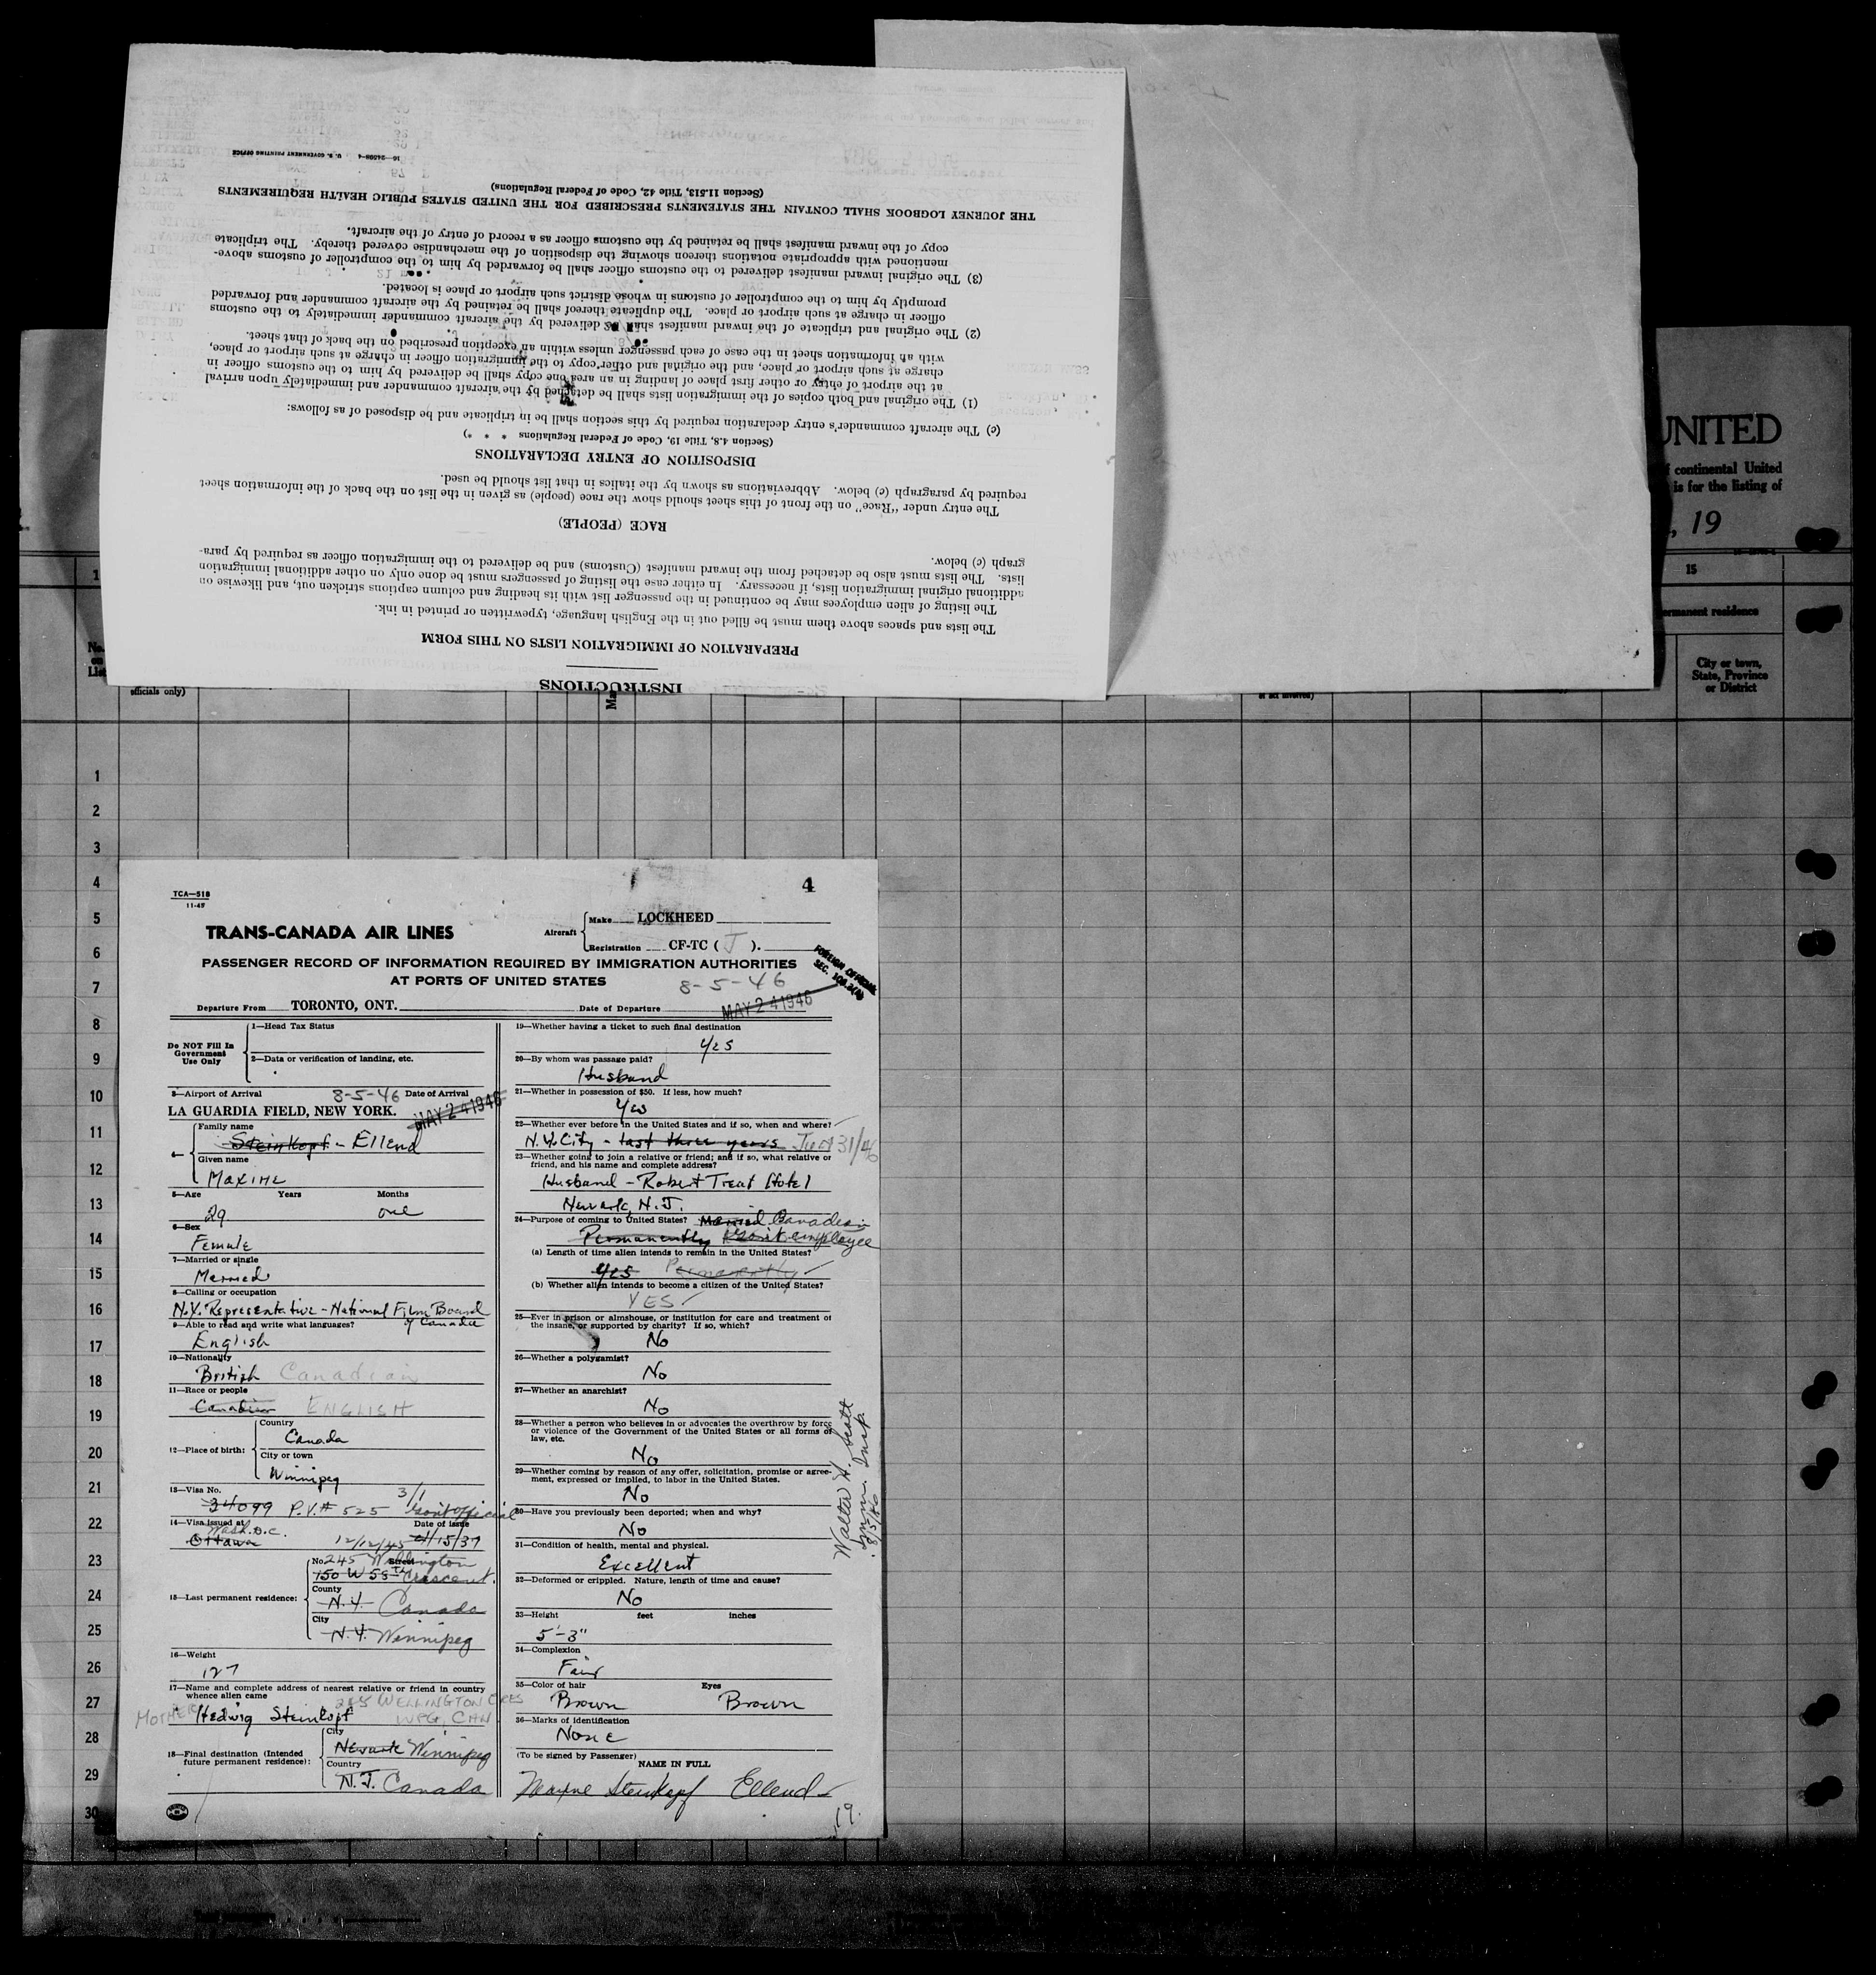 INSTRUCTIONS
PREPARATION OF IMMIGRATION LISTS ON THIS FORM
The lists and spaces above them must be filled out in the English language, typewritten or printed in ink.
The listing of alien employees may be continued in the passenger list with its heading and column captions stricken out, and likewise on
additional original immigration lists, if necessary. In either case the listing of passengers must be done only on other additional immigration
lists. The lists must also be detached from the inward manifest (Customs) and be delivered to the immigration officer as required by para-
graph (c) below.
RACE (PEOPLE)
The entry under "Race" on the front of this sheet should show the race (people) as given in the list on the back of the information sheet
required by paragraph (c) below. Abbreviations as shown by the italics in that list should be used.
DISPOSITION OF ENTRY DECLARATIONS
(Section 4.8, Title 19, Code of Federal Regulations * * *)
(c) The aircraft commander's entry declaration required by this section shall be in triplicate and be disposed of as follows:
(1) The original and both copies of the immigration lists shall be detached by the aircraft commander and immediately upon arrival
at the airport of entry or other first place of landing in an area one copy shall be delivered by him to the customs officer in
charge at such airport or place, and the original and other copy to the immigration officer in charge at such airport or place,
with an information sheet in the case of each passenger unless within an exception prescribed on the back of that sheet.
(2) The original and triplicate of the inward manifest shall be delivered by the aircraft commander immediately to the customs
officer in charge at such airport or place. The duplicate thereof shall be retained by the aircraft commander and forwarded
promptly by him to the comptroller of customs in whose district such airport or place is located.
(3) The original inward manifest delivered to the customs officer shall be forwarded by him to the comptroller of customs above-
mentioned with appropriate notations thereon showing the disposition of the merchandise covered thereby. The triplicate
copy of the inward manifest shall be retained by the customs officer as a record of entry of the aircraft.
THE JOURNEY LOGBOOK SHALL CONTAIN THE STATEMENTS PRESCRIBED FOR THE UNITED STATES PUBLIC HEALTH REQUIREMENTS
(Section 11.513, Title 42, Code of Federal Regulations)
16—24508-4 U. S. GOVERNMENT PRINTING OFFICE
UNITED
continental United
is for the listing of
, 19
15
permanent residence
City or town,
State, Province
or District
No.
on
List
officials only)
1
2
3
4
5
6
7
8
9
10
11
12
13
14
15
16
17
18
19
20
21
22
23
24
25
26
27
28
29
30
TCA—518
11-45
4
TRANS-CANADA AIR LINES
Aircraft
Make LOCKHEED
Registration CF-TC ( J ).
PASSENGER RECORD OF INFORMATION REQUIRED BY IMMIGRATION AUTHORITIES
AT PORTS OF UNITED STATES
FOREIGN OFFICIAL
8-5-46
Departure From TORONTO, ONT. Date of Departure MAY 24 1946
Do NOT Fill In
Government
Use Only
1—Head Tax Status
2—Data or verification of landing, etc.
3—Airport of Arrival 8-5-46 Date of Arrival
LA GUARDIA FIELD, NEW YORK. MAY 24 1946
4—
Family name
Steinkopf - Ellend
Given name
Maxine
5—Age Years Months
29 one
6—Sex
Female
7—Married or single
Married
8—Calling or occupation
N.Y. Representative - National Film Board
of Canada
9—Able to read and write what languages?
English
10—Nationality
British Canadian
11—Race or people
Canadian ENGLISH
12—Place of birth:
Country
Canada
City or town
Winnipeg
13—Visa No. 3/1
34099 P.V.# 525 Gov't official
14—Visa issued at Date of issue
Wash. D.C.
Ottawa 12/12/45 /15/37
15—Last permanent residence:
No. 245 Wellington Street
150 W 58th Crescent.
County
N.Y. Canada
City
N.Y. Winnipeg
16—Weight
127
17—Name and complete address of nearest relative or friend in country
whence alien came
245 WELLINGTON CRES
MOTHER Hedwig Steinkopf WPG, CAN
18—Final destination (Intended
future permanent residence):
City
Newark Winnipeg
Country
N.J. Canada
19—Whether having a ticket to such final destination
Yes
20—By whom was passage paid?
Husband
21—Whether in possession of $50. If less, how much?
Yes
22—Whether ever before in the United States and if so, when and where?
N.Y. City - last three years 31/46
23—Whether going to join a relative or friend; and if so, what relative or
friend, and his name and complete address?
Husband - Robert Treat Hotel
Newark, N.J.
24—Purpose of coming to United States? Married Canadian
Permanently Gov't employee
(a) Length of time alien intends to remain in the United States?
Yes Permanently
(b) Whether alien intends to become a citizen of the United States?
YES
25—Ever in prison or almshouse, or institution for care and treatment of
the insane, or supported by charity? If so, which?
No
26—Whether a polygamist?
No
27—Whether an anarchist?
No
28—Whether a person who believes in or advocates the overthrow by force
or violence of the Government of the United States or all forms of
law, etc.
No
29—Whether coming by reason of any offer, solicitation, promise or agree-
ment, expressed or implied, to labor in the United States.
No
30—Have you previously been deported; when and why?
No
31—Condition of health, mental and physical.
Excellent
32—Deformed or crippled. Nature, length of time and cause?
No
33—Height feet inches
5'-3"
34—Complexion
Fair
35—Color of hair Eyes
Brown Brown
36—Marks of identification
None
(To be signed by Passenger)
NAME IN FULL
Maxine Steinkopf Ellend
19.
Walter H. Scott
Imm. Insp.
8/5/46